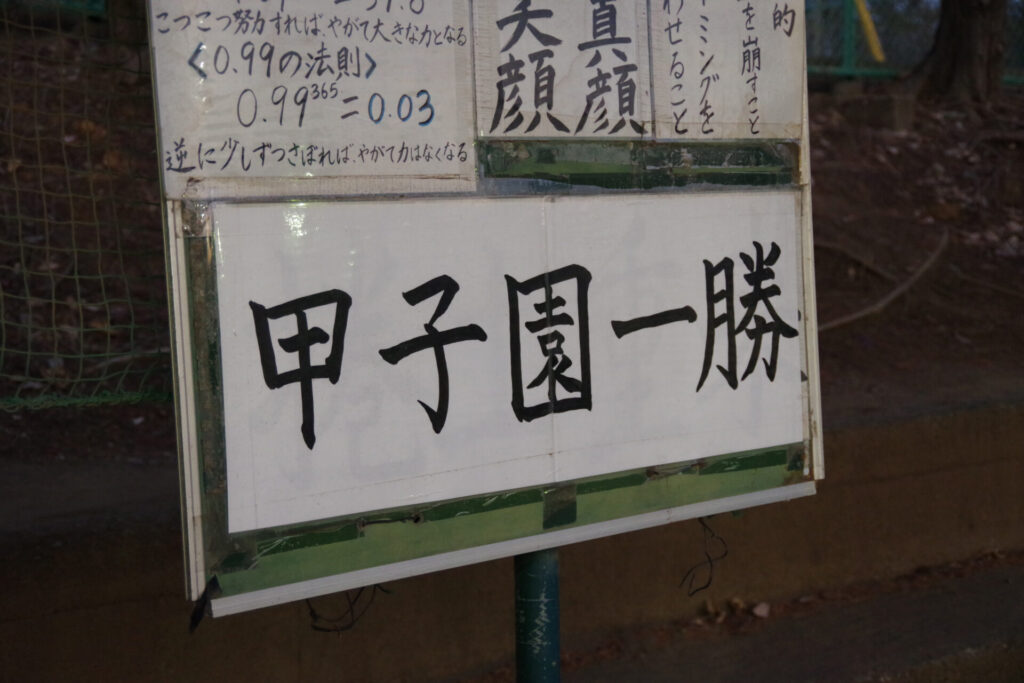 こつこつ努力すれば、やがて大きな力となる
<0.99の法則>
0.99³⁶⁵=0.03
逆に少しずつさぼれば、やがて力はなくなる
真顔
笑顔
的
を崩すこと
ミングを
わせること
甲子園一勝